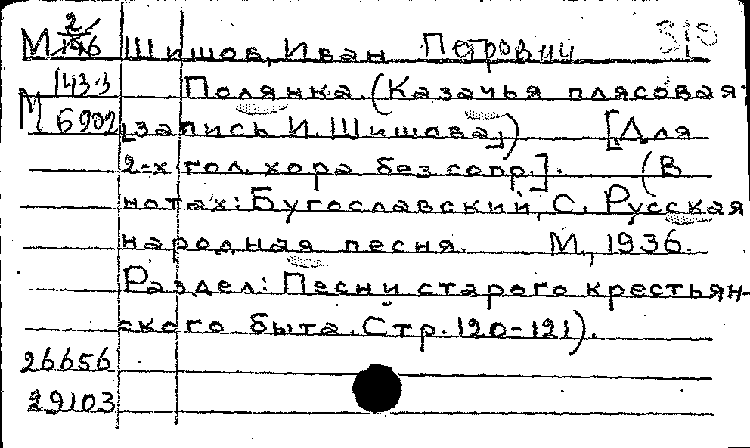 М 2/146 Шишов, Иван Петрович
М 143.3 Полянка. (Казачья плясовая:
6902 [запись И. Шишова]) [Для
2-х гол. хора без сопр.]. (В
нотах: Бугославский, С. Русская
народная песня. М., 1936.
Раздел: Песни старого крестьян-
ского быта. Стр. 120-121).
26656
29103